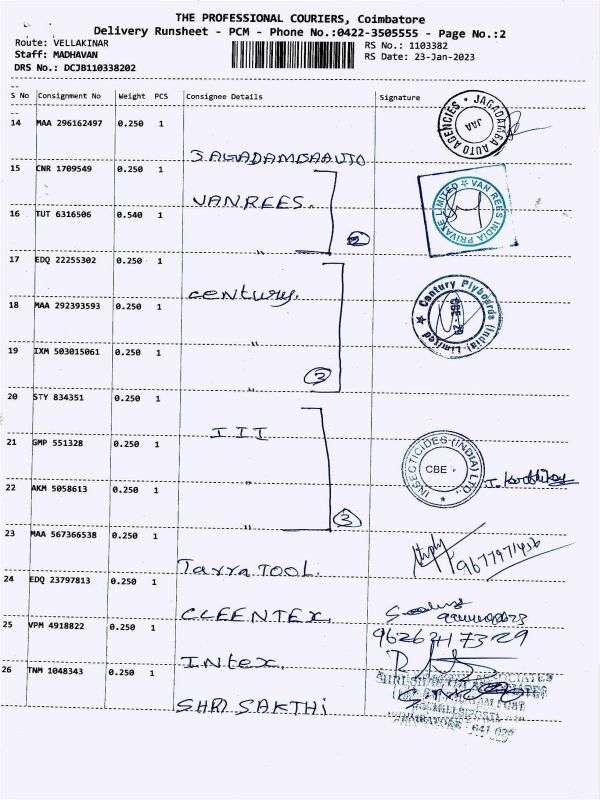 THE PROFESSIONAL COURIERS, Coimbatore
Delivery Runsheet - PCM - Phone No.:0422-3505555 - Page No.:2
Route: VELLAKINAR
RS No.: 1103382
Staff: MADHAVAN
RS Date: 23-Jan-2023
DRS No.: DCJB110338202
S No Consignment No Weight PCS Consignee Details Signature
14 MAA 296162497 0.250 1
JAGADAMBA AUTO AGENCIES JAA
J.AGADAMBAAUTO
15 CNR 1709549 0.250 1
VANREES.
VAN REES INDIA PRIVATE LIMITED
16 TUT 6316506 0.540 1
"
17 EDQ 22255302 0.250 1
century.
Century Plyboards (India) Limited
CBE-29
18 MAA 292393593 0.250 1
"
19 IXM 503015061 0.250 1
"
3
20 STY 834351 0.250 1
III
21 GMP 551328 0.250 1
INSECTICIDES (INDIA) LTD.,
CBE
"
22 AKM 5058613 0.250 1
"
3
23 MAA 567366538 0.250 1
Tarra TOOL.
24 EDQ 23797813 0.250 1
CLEENTEX.
25 VPM 4918822 0.250 1
INtex.
26 TNM 1048343 0.250 1
SHRI SAKTHI